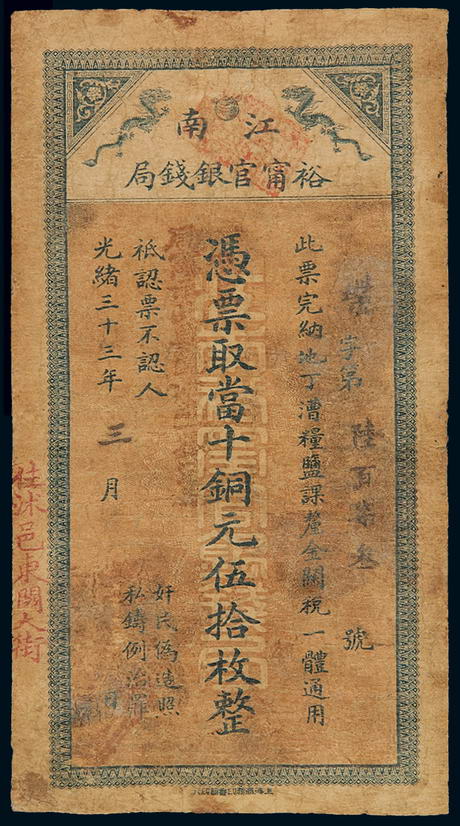 江南
裕甯官銀錢局
字第陸百柒叁號
此票完納地丁漕糧鹽課釐金關稅一體通用
憑票取當十銅元伍拾枚整
祇認票不認人
光緒三十三年三月
奸民偽造照
私鑄例治罪
住沭邑東關大街